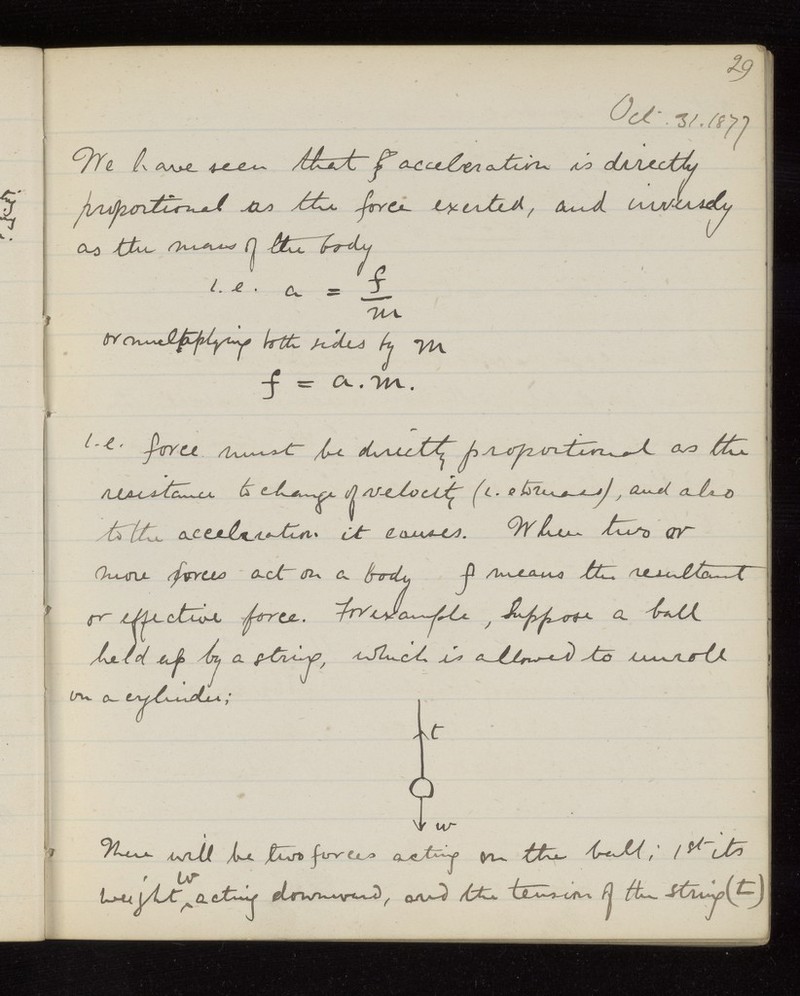 29
Oct. 31. 1877
We have seen that acceleration is directly
proportional as the force exerted, and inversely
as the mass of the body
i.e. a = f/m
or multiplying both sides by m
f = a.m.
i.e. force must be directly proportional as the
resistance to change of velocity (i.e. to mass), and also
to the acceleration it causes. When two or
more forces act on a body f means the resultant
or effective force. For example, Suppose a ball
held up by a string, which is allowed to unroll
on a cylinder;
t
w
There will be two forces acting on the ball; 1st its
weight w acting downward, and the tension of the string (t)